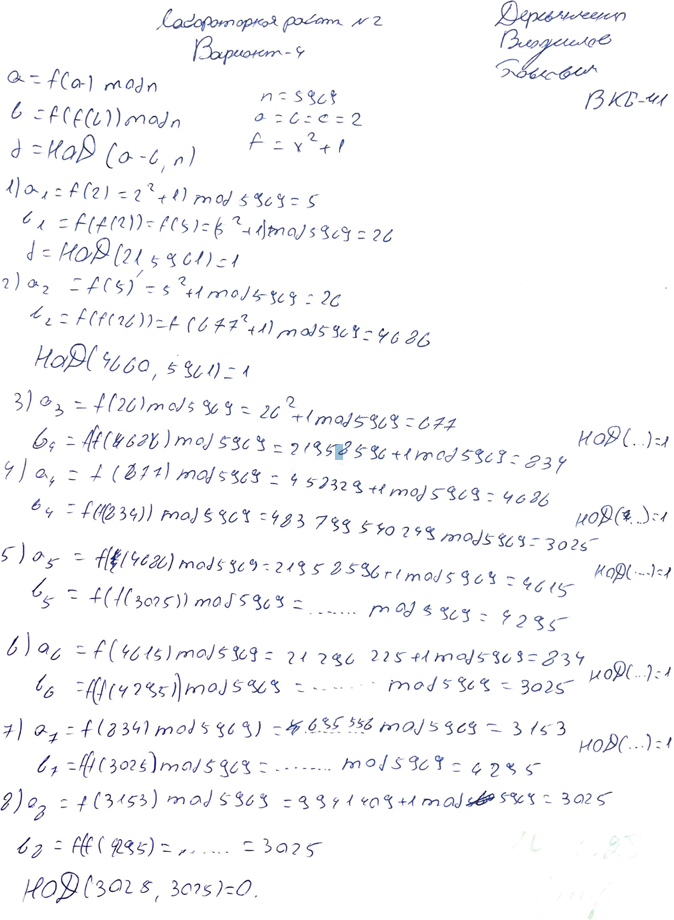 Лабораторная работа №2
Вариант-4
ВКБ-41
a = f(a) mod n
b = f(f(b)) mod n
d = НОД (a-b, n)
n = 5969
a = b = c = 2
f = x² + 1
1) a₁ = f(2) = 2² + 1) mod 5969 = 5
b₁ = f(f(2)) = f(5) = (5² + 1) mod 5969 = 26
d = НОД(21, 5961) = 1
2) a₂ = f(5) = 5² + 1 mod 5969 = 26
b₂ = f(f(26)) = f(677² + 1) mod 5969 = 4686
НОД(4660, 5961) = 1
3) a₃ = f(26) mod 5969 = 26² + 1 mod 5969 = 677
b₄ = f(f(4686) mod 5969 = 21958596 + 1 mod 5969 = 834 НОД(...) = 1
4) a₄ = f(677) mod 5969 = 458329 + 1 mod 5969 = 4686
b₄ = f(f(834)) mod 5969 = 483 799 540 249 mod 5969 = 3025 НОД(...) = 1
5) a₅ = f(4686) mod 5969 = 21958596 + 1 mod 5969 = 4615 НОД(...) = 1
b₅ = f(f(3025)) mod 5969 = ....... mod 5969 = 4295
6) a₆ = f(4615) mod 5969 = 21 296 225 + 1 mod 5969 = 834
b₆ = f(f(4295)) mod 5969 = ........ mod 5969 = 3025 НОД(...) = 1
7) a₇ = f(834) mod 5969) = 695 556 mod 5969 = 3153
b₇ = f(f(3025) mod 5969 = ........ mod 5969 = 4295 НОД(...) = 1
8) a₈ = f(3153) mod 5969 = 9941409 + 1 mod 5969 = 3025
b₈ = f(f(4295) = ........ = 3025
НОД(3025, 3025) = 0.